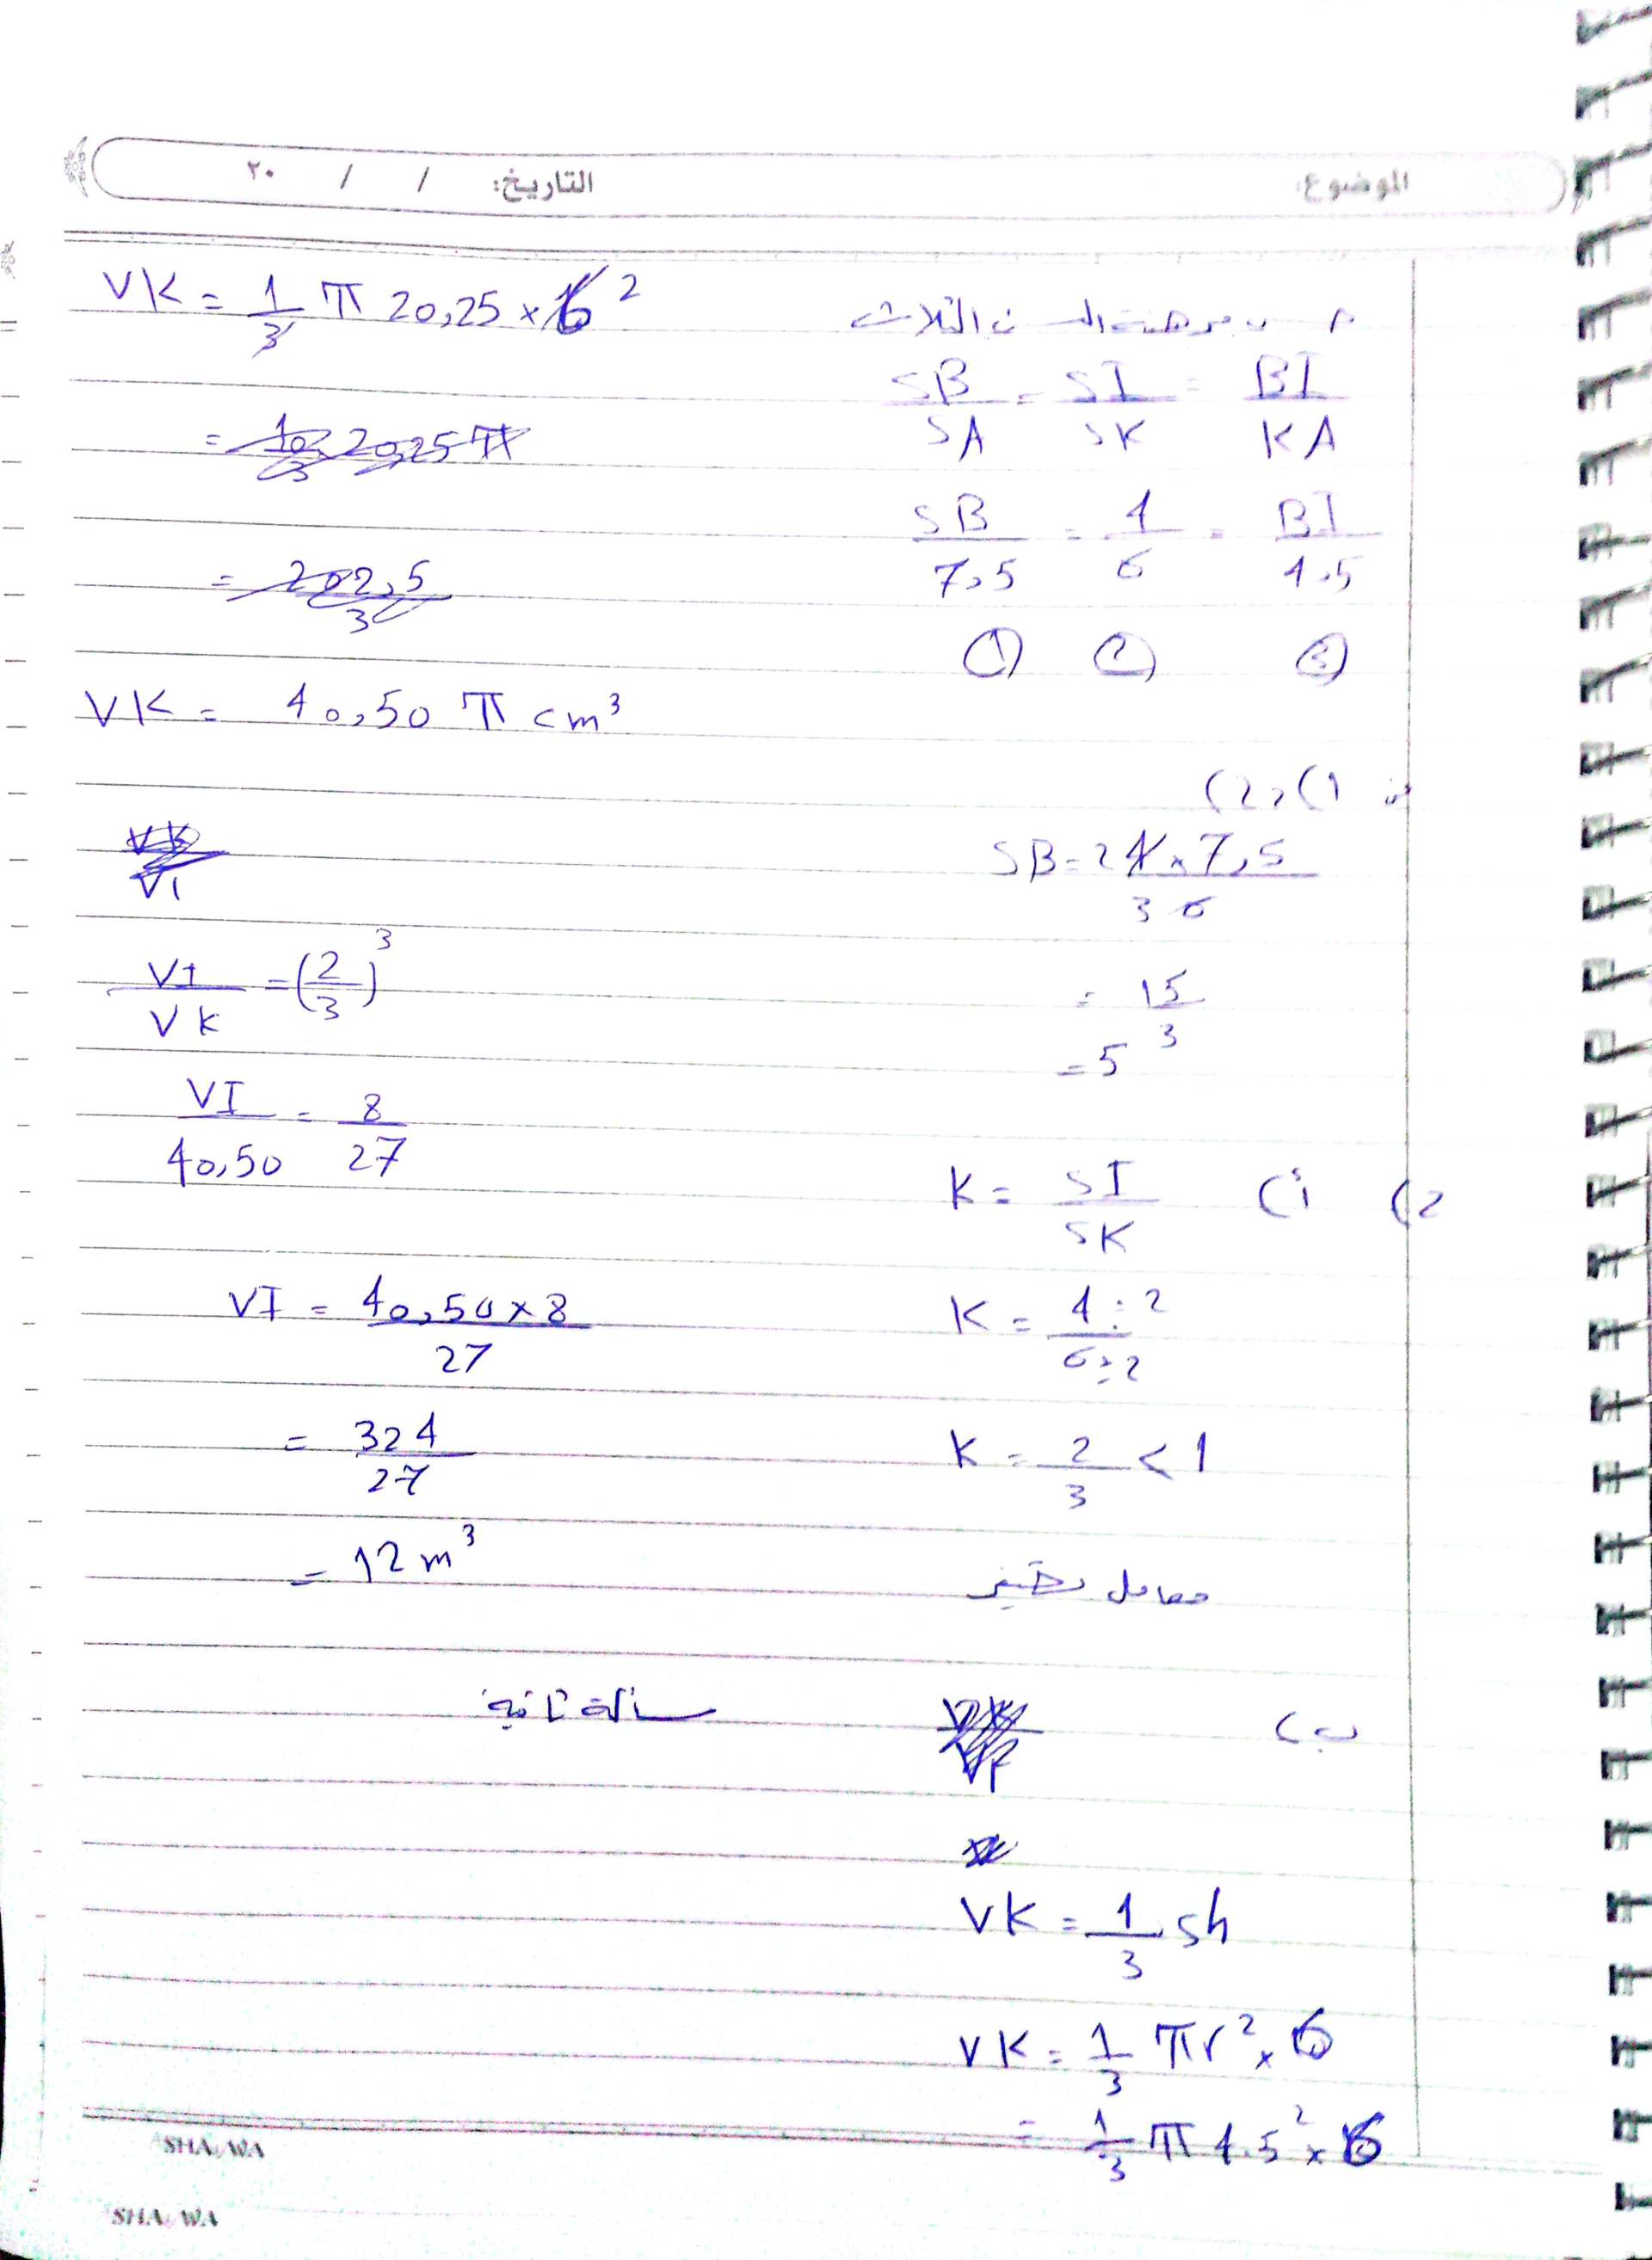 الموضوع: التاريخ: / / ٢٠
النسب الثلاث
SB/SA = SI/SK = BI/KA
SB/7,5 = 4/6 = BI/4,5
① ② ③
من 1) ، 2)
SB = 2 4 × 7,5 / 3 6
= 15/3
= 5
2) أ) K = SI/SK
K = 4 ÷ 2 / 6 ÷ 2
K = 2/3 < 1
معامل تصغير
ب)
VK = 1/3 sh
VK = 1/3 πr² × 6
= 1/3 π 4.5² × 6
VK = 1/3 π 20,25 × 6 2
= 10/3 20,25 π
= 202,5/3
VK = 40,50 π cm³
VI/VK = (2/3)³
VI/40,50 = 8/27
VI = 40,50 × 8 / 27
= 324/27
= 12 m³
مسألة ثانية
SHA WA
SHA WA